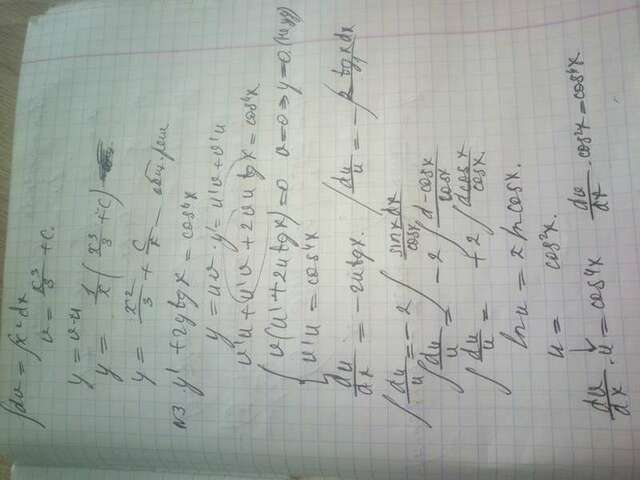 ∫dv = ∫x² dx
v = x³/3 + c.
y = v·u
y = 1/x (x³/3 + c)
y = x²/3 + c/x – общ. реш
№3 y' + 2y tg x = cos⁴x
y = uv · y' = u'v + v'u
v'u + u'v + 2vu tg x = cos⁴x
{ v(u' + 2u tg x) = 0 v = 0 ⇒ y = 0
v'u = cos⁴x
du/dx = –2u tg x. ∫du/u = –∫2 tg x dx
∫du/u = –2 ∫ sin x dx/cos x
∫du/u = –2 ∫ d–cos x/cos x
∫du/u = +2 ∫ dcos x/cos x
ln u = 2 ln cos x.
u = cos²x.
dv/dx · u = cos⁴x dv/dx · cos²x = cos⁴x